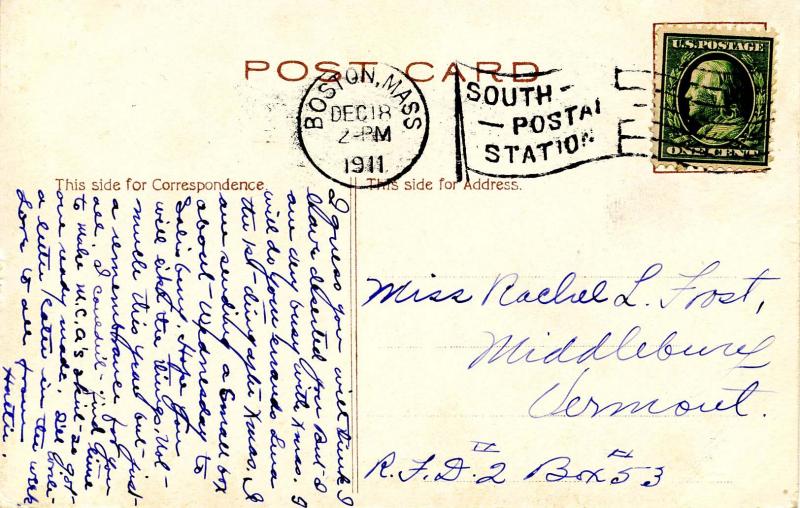 POST CARD
BOSTON, MASS.
DEC 18
2-PM
1911
SOUTH-
-POSTAL
STATION
U.S. POSTAGE
ONE CENT
This side for Correspondence.
This side for Address.
I guess you will think I
have deserted you but I
am very busy with Xmas. I
will do your errands Luna
the 1st thing after Xmas. I
am sending a small box
about Wednesday to
Salisbury. Hope you
will like the things. Not
much this year but just
a remembrance for you
all. I couldn't find time
to make M.C.A's skirt so got
one ready made. I'll write
a letter later in the week
Love to all from
Hattie.
Miss Rachel L. Frost,
Middlebury
Vermont.
R.F.D. 2 Box 53